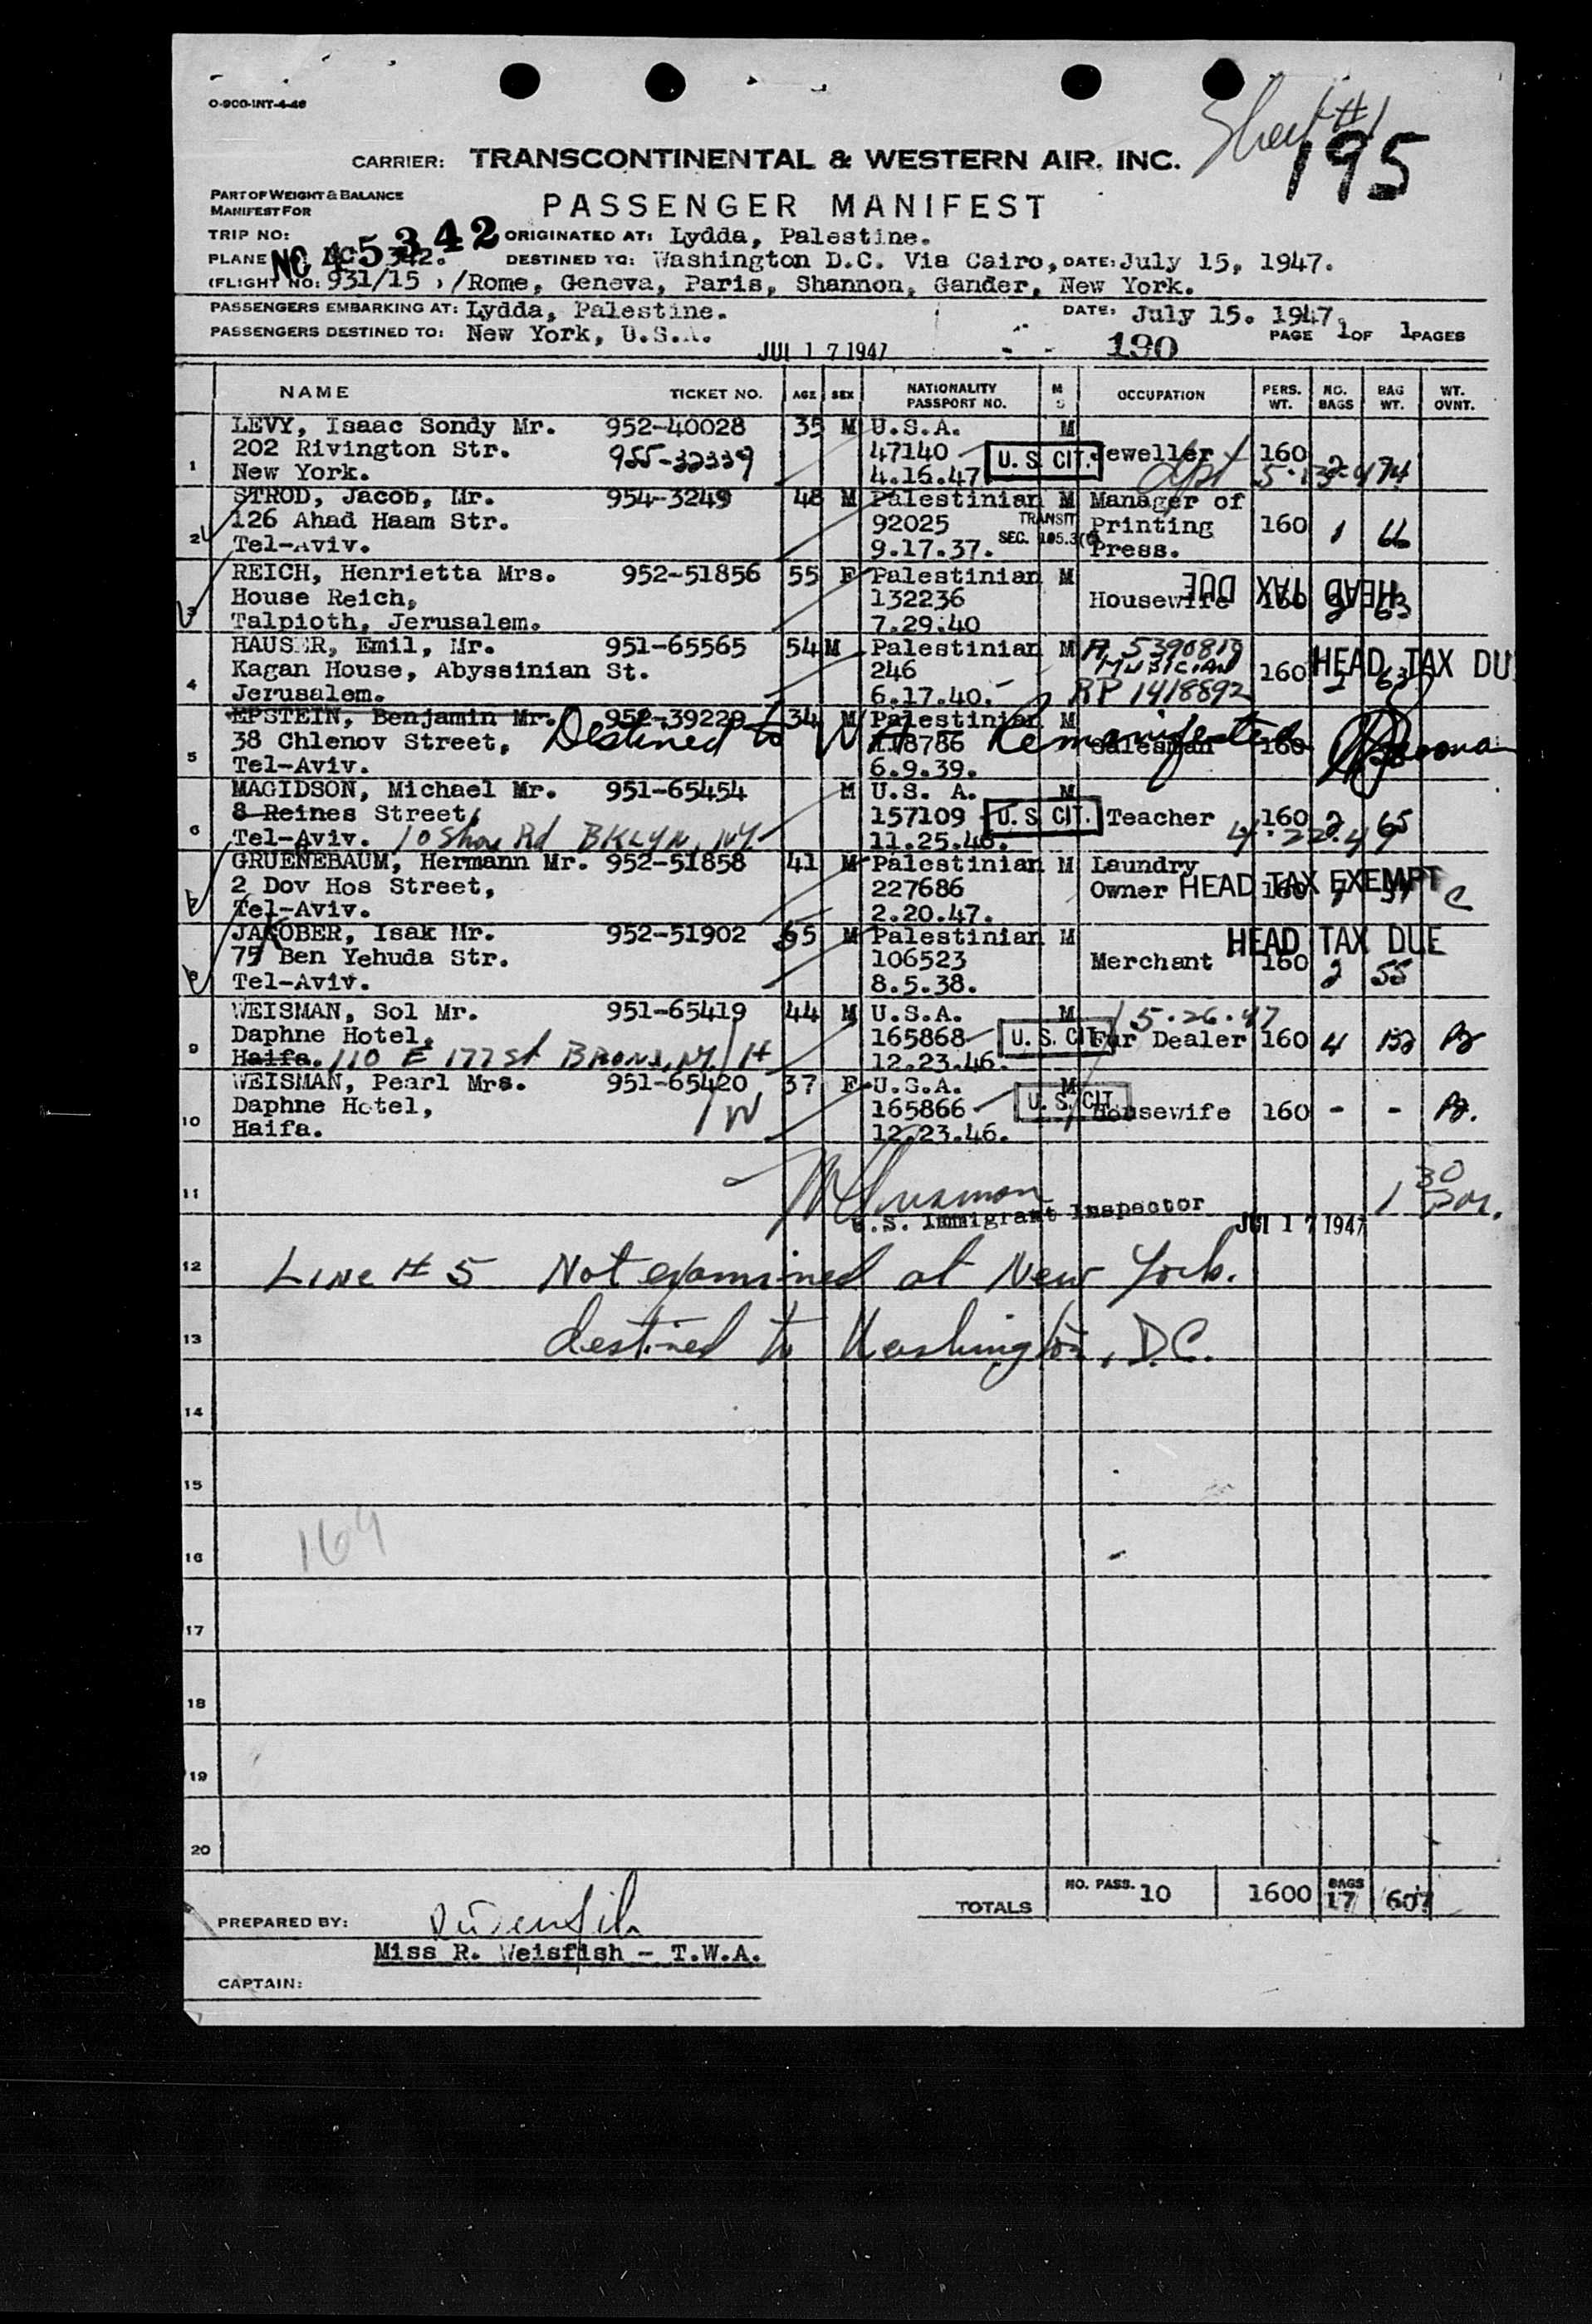 O-900-INT-4-46
Sheet #1
195
CARRIER: TRANSCONTINENTAL & WESTERN AIR. INC.
PART OF WEIGHT & BALANCE
MANIFEST FOR
PASSENGER MANIFEST
TRIP NO: ORIGINATED AT: Lydda, Palestine.
PLANE NC 45342 DESTINED TO: Washington D.C. Via Cairo, DATE: July 15, 1947.
(FLIGHT NO: 931/15 ,/Rome, Geneva, Paris, Shannon, Gander, New York.
PASSENGERS EMBARKING AT: Lydda, Palestine. DATE: July 15. 1947.
PASSENGERS DESTINED TO: New York, U.S.A. PAGE 1 OF 1 PAGES
JUL 17 1947 190
NAME TICKET NO. AGE SEX NATIONALITY PASSPORT NO. M S OCCUPATION PERS. WT. NO. BAGS BAG WT. WT. OVNT.
LEVY, Isaac Sondy Mr. 952-40028 35 M U.S.A. M
202 Rivington Str. 955-32339 47140 U. S. CIT. Jeweller 160
1 New York. 4.16.47 2 74
STROD, Jacob, Mr. 954-3249 48 M Palestinian M Manager of
126 Ahad Haam Str. 92025 TRANSIT Printing 160 1 66
2 Tel-Aviv. 9.17.37. SEC. 105.3 Press.
REICH, Henrietta Mrs. 952-51856 55 F Palestinian M HEAD TAX DUE
House Reich, 132236 Housewife 160 2 63
3 Talpioth, Jerusalem. 7.29.40
HAUSER, Emil, Mr. 951-65565 54 M Palestinian M A 5390810
Kagan House, Abyssinian St. 246 MUSICIAN 160 2 63 HEAD TAX DU
4 Jerusalem. 6.17.40. RP 1418892
EPSTEIN, Benjamin Mr. 952-39229 34 M Palestinian M
38 Chlenov Street, 118786 Salesman 160
Destined to WA - Remanifested
5 Tel-Aviv. 6.9.39.
MAGIDSON, Michael Mr. 951-65454 M U.S. A. M
8 Reines Street, 157109 U. S. CIT. Teacher 160 2 65
6 Tel-Aviv. 10 Shore Rd BKLYN, NY 11.25.46. 4.22.47
GRUENEBAUM, Hermann Mr. 952-51858 41 M Palestinian M Laundry
2 Dov Hos Street, 227686 Owner 160 HEAD TAX EXEMPT C
7 Tel-Aviv. 2.20.47.
JAKOBER, Isak Mr. 952-51902 55 M Palestinian M HEAD TAX DUE
75 Ben Yehuda Str. 106523 Merchant 160 2 55
8 Tel-Aviv. 8.5.38.
WEISMAN, Sol Mr. 951-65419 44 M U.S.A. M 5.26.47
Daphne Hotel, 165868 U. S. CIT Fur Dealer 160 4 152
9 Haifa. 110 E 177 St BRONX, NY. H 12.23.46.
WEISMAN, Pearl Mrs. 951-65420 37 F U.S.A. M
Daphne Hotel, W 165866 U. S. CIT. Housewife 160 - -
10 Haifa. 12.23.46.
11 1 30 P.M.
U.S. Immigrant Inspector JUL 17 1947
12 Line # 5 Not examined at New York.
13 destined to Washington, D.C.
14
15
16 169
17
18
19
20
TOTALS NO. PASS. 10 1600 BAGS 17 607
PREPARED BY:
Miss R. Weisfish - T.W.A.
CAPTAIN: